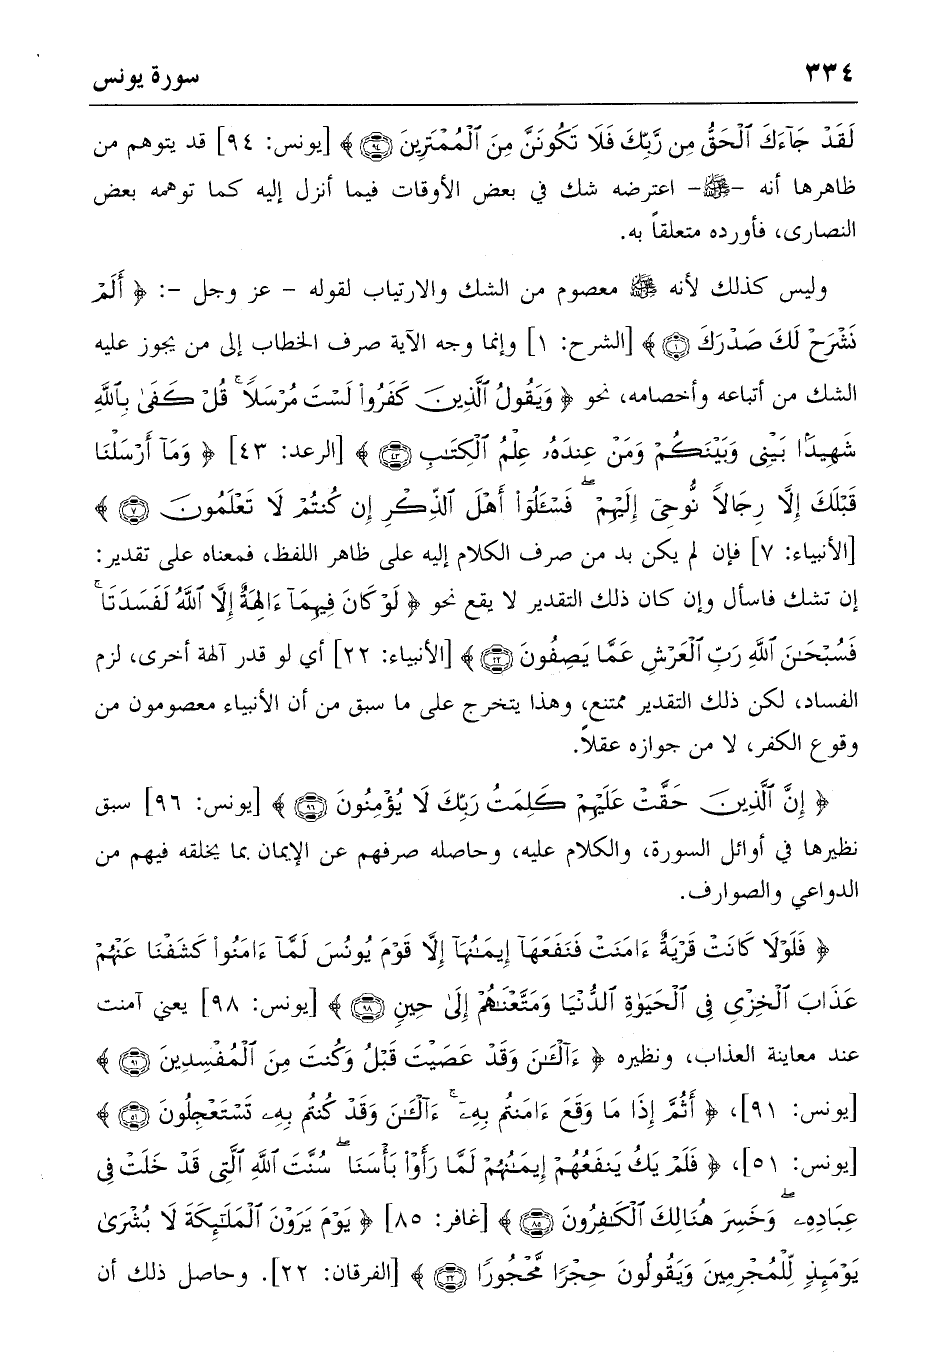 ٣٣٤
سورة يونس
لَقَدْ جَآءَكَ ٱلْحَقُّ مِن رَّبِّكَ فَلَا تَكُونَنَّ مِنَ ٱلْمُمْتَرِينَ ﴿٩٤﴾ ﴾ [يونس: ٩٤] قد يتوهم من
ظاهرها أنه –ﷺ– اعترضه شك في بعض الأوقات فيما أنزل إليه كما توهمه بعض
النصارى، فأورده متعلقاً به.
وليس كذلك لأنه ﷺ معصوم من الشك والارتياب لقوله – عز وجل –: ﴿ أَلَمْ
نَشْرَحْ لَكَ صَدْرَكَ ﴿١﴾ ﴾ [الشرح: ١] وإنما وجه الآية صرف الخطاب إلى من يجوز عليه
الشك من أتباعه وأخصامه، نحو ﴿ وَيَقُولُ ٱلَّذِينَ كَفَرُوا۟ لَسْتَ مُرْسَلًا ۚ قُلْ كَفَىٰ بِٱللَّهِ
شَهِيدًۢا بَيْنِى وَبَيْنَكُمْ وَمَنْ عِندَهُۥ عِلْمُ ٱلْكِتَٰبِ ﴿٤٣﴾ ﴾ [الرعد: ٤٣] ﴿ وَمَآ أَرْسَلْنَا
قَبْلَكَ إِلَّا رِجَالًا نُّوحِىٓ إِلَيْهِمْ ۖ فَسْـَٔلُوٓا۟ أَهْلَ ٱلذِّكْرِ إِن كُنتُمْ لَا تَعْلَمُونَ ﴿٧﴾ ﴾
[الأنبياء: ٧] فإن لم يكن بد من صرف الكلام إليه على ظاهر اللفظ، فمعناه على تقدير:
إن تشك فاسأل وإن كان ذلك التقدير لا يقع نحو ﴿ لَوْ كَانَ فِيهِمَآ ءَالِهَةٌ إِلَّا ٱللَّهُ لَفَسَدَتَا ۚ
فَسُبْحَٰنَ ٱللَّهِ رَبِّ ٱلْعَرْشِ عَمَّا يَصِفُونَ ﴿٢٢﴾ ﴾ [الأنبياء: ٢٢] أي لو قدر آلهة أخرى، لزم
الفساد، لكن ذلك التقدير ممتنع، وهذا يتخرج على ما سبق من أن الأنبياء معصومون من
وقوع الكفر، لا من جوازه عقلاً.
﴿ إِنَّ ٱلَّذِينَ حَقَّتْ عَلَيْهِمْ كَلِمَتُ رَبِّكَ لَا يُؤْمِنُونَ ﴿٩٦﴾ ﴾ [يونس: ٩٦] سبق
نظيرها في أوائل السورة، والكلام عليه، وحاصله صرفهم عن الإيمان بما يخلقه فيهم من
الدواعي والصوارف.
﴿ فَلَوْلَا كَانَتْ قَرْيَةٌ ءَامَنَتْ فَنَفَعَهَآ إِيمَٰنُهَآ إِلَّا قَوْمَ يُونُسَ لَمَّآ ءَامَنُوا۟ كَشَفْنَا عَنْهُمْ
عَذَابَ ٱلْخِزْىِ فِى ٱلْحَيَوٰةِ ٱلدُّنْيَا وَمَتَّعْنَٰهُمْ إِلَىٰ حِينٍ ﴿٩٨﴾ ﴾ [يونس: ٩٨] يعني آمنت
عند معاينة العذاب، ونظيره ﴿ ءَآلْـَٰٔنَ وَقَدْ عَصَيْتَ قَبْلُ وَكُنتَ مِنَ ٱلْمُفْسِدِينَ ﴿٩١﴾ ﴾
[يونس: ٩١]، ﴿ أَثُمَّ إِذَا مَا وَقَعَ ءَامَنتُم بِهِۦٓ ۚ ءَآلْـَٰٔنَ وَقَدْ كُنتُم بِهِۦ تَسْتَعْجِلُونَ ﴿٥١﴾ ﴾
[يونس: ٥١]، ﴿ فَلَمْ يَكُ يَنفَعُهُمْ إِيمَٰنُهُمْ لَمَّا رَأَوْا۟ بَأْسَنَا ۖ سُنَّتَ ٱللَّهِ ٱلَّتِى قَدْ خَلَتْ فِى
عِبَادِهِۦ ۖ وَخَسِرَ هُنَالِكَ ٱلْكَٰفِرُونَ ﴿٨٥﴾ ﴾ [غافر: ٨٥] ﴿ يَوْمَ يَرَوْنَ ٱلْمَلَٰٓئِكَةَ لَا بُشْرَىٰ
يَوْمَئِذٍ لِّلْمُجْرِمِينَ وَيَقُولُونَ حِجْرًا مَّحْجُورًا ﴿٢٢﴾ ﴾ [الفرقان: ٢٢]. وحاصل ذلك أن